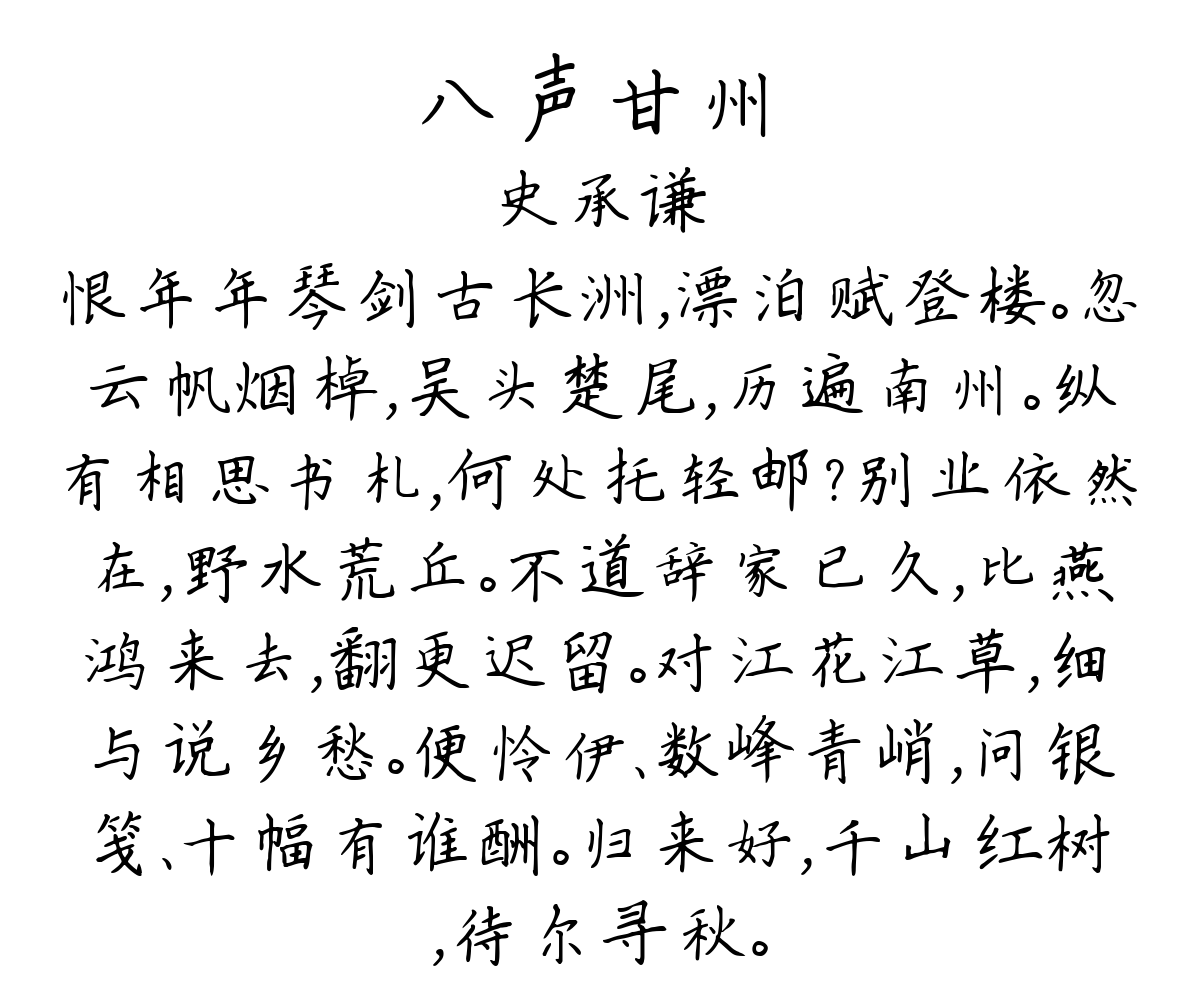 八声甘州
史承谦
恨年年琴剑古长洲,漂泊赋登楼。忽
云帆烟棹,吴头楚尾,历遍南州。纵
有相思书札,何处托轻邮?别业依然
在,野水荒丘。不道辞家已久,比燕
鸿来去,翻更迟留。对江花江草,细
与说乡愁。便怜伊、数峰青峭,问银
笺、十幅有谁酬。归来好,千山红树
,待尔寻秋。